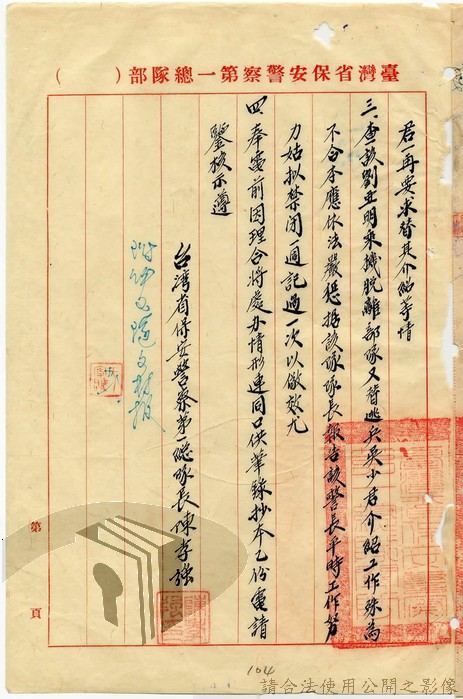 臺灣省保安警察第一總隊部（　）
君一再要求替其介紹等情
三、查該劉亞明乘機脫離部隊又替逃兵吳少君介紹工作殊為
不合本應依法嚴懲据該隊隊長報告該警長平時工作努
力姑拟禁閉一週記過一次以儆效尤
四、奉電前因理合將處办情形連同口供筆錄抄本乙份電請
鑒核示遵
台灣省保安警察第一總隊長陳孝強
第　頁
104
請合法使用公開之影像